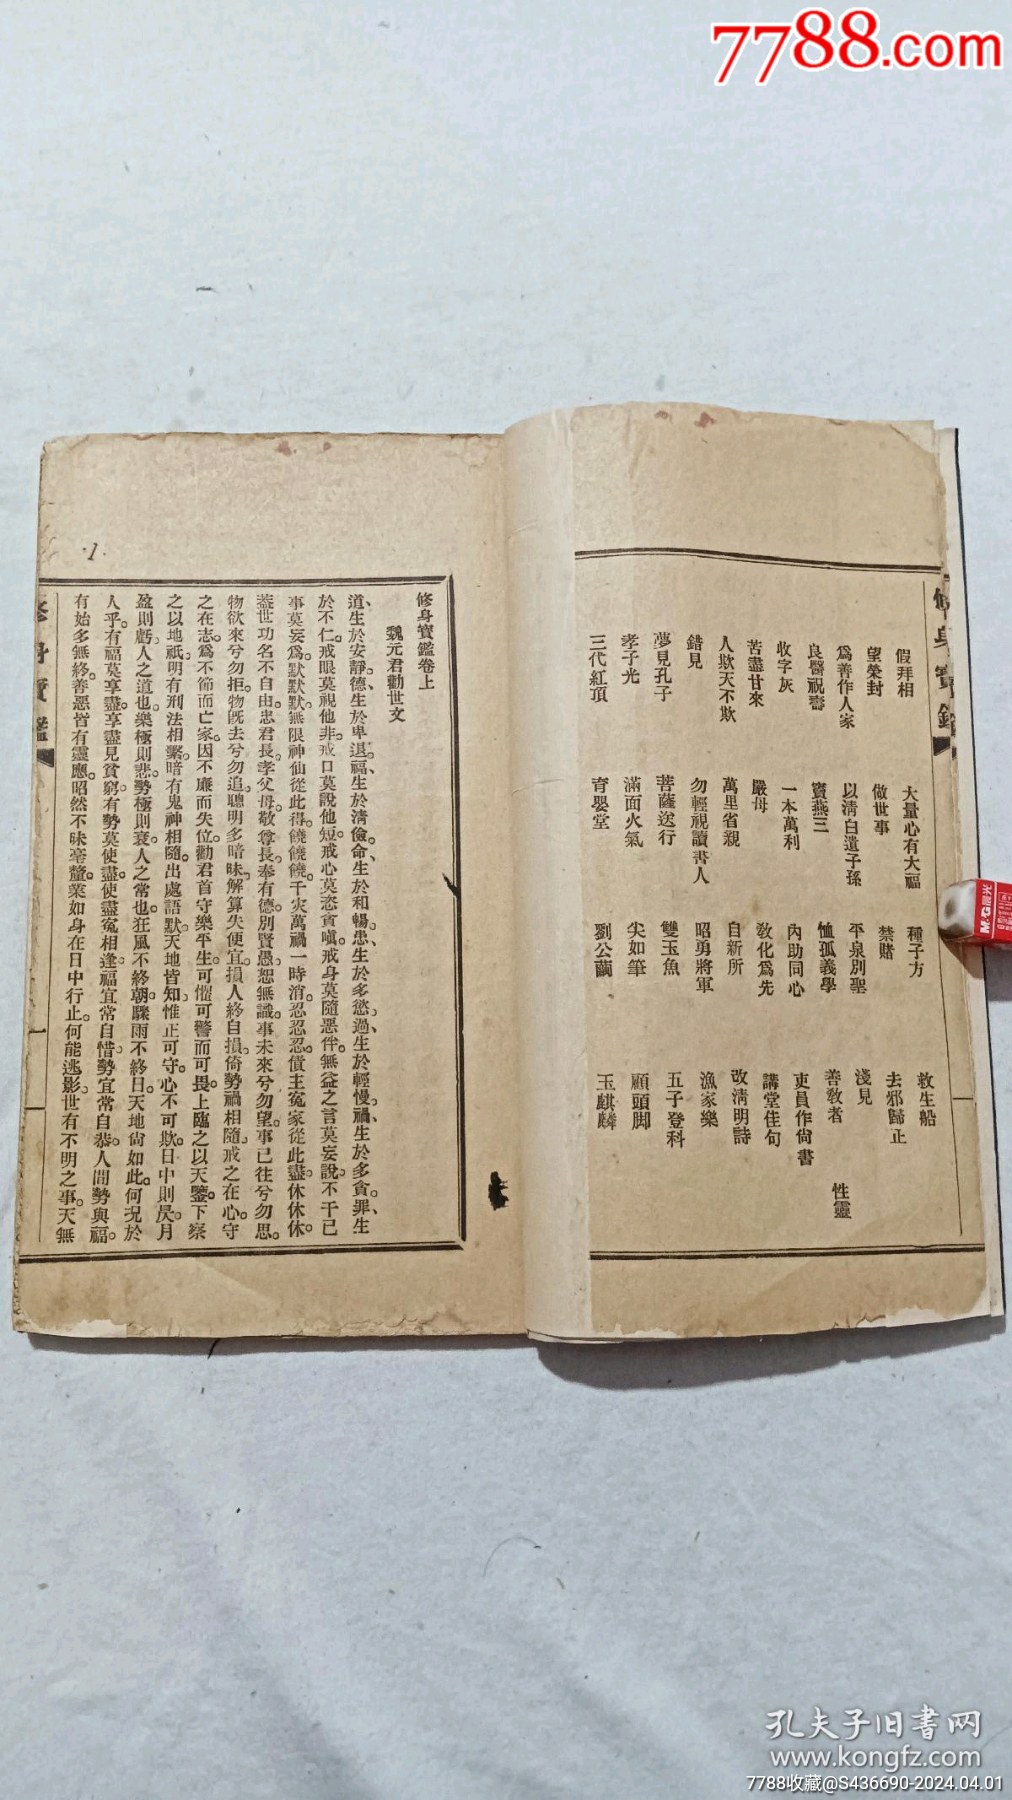 7788.com
修身寶鑑
假拜相
大量心有大福
種子方
救生船
望榮封
做世事
禁賭
去邪歸正
爲善作人家
以清白遺子孫
平泉別墅
淺見
良醫祝壽
竇燕三
恤孤義學
善敎者
性靈
收字灰
一本萬利
內助同心
吏員作尙書
苦盡甘來
嚴母
敎化爲先
講堂佳句
人欺天不欺
萬里省親
自新所
改淸明詩
錯見
勿輕視讀書人
昭勇將軍
漁家樂
夢見孔子
菩薩送行
雙玉魚
五子登科
孝子光
滿面火氣
尖如筆
顧頭脚
三代紅頂
育嬰堂
劉公繭
玉麒麟
1
修身寶鑑卷上
魏元君勸世文
道生於安靜、德生於卑退。福生於清儉。命生於和暢。患、生於多慾、過生於輕慢。禍、生於多貪、罪生
於不仁。戒眼莫視他非。戒口莫說他短。戒心莫恣貪嗔。戒身莫隨惡伴。無益之言莫妄說。不干己
事莫妄爲。默默默。無限神仙從此得。饒饒饒。千灾萬禍一時消。忍忍忍。債主冤家從此盡。休休休。
蓋世功名不自由。忠君長。孝父母。敬尊長。奉有德。別賢愚。恕無識。事未來兮勿望。事已往兮勿思。
物欲來兮勿拒。物既去兮勿追。聰明多暗昧。解算失便宜。損人終自損。倚勢禍相隨。戒之在心。守
之在志。爲不節而亡家。因不廉而失位。勸君首守樂平生。可懼可警而可畏。上臨之以天鑒。下察
之以地祇。明有刑法相繫。暗有鬼神相隨。出處語默。天地皆知。惟正可守。心不可欺。日中則昃。月
盈則虧。人之道也。樂極則悲。勢極則衰。人之常也。狂風不終朝。驟雨不終日。天地尙如此。何況於
人乎。有福莫享盡。享盡見貧窮。有勢莫使盡。使盡冤相逢。福宜常自惜。勢宜常自恭。人間勢與福。
有始多無終。善惡皆有靈應。昭然不昧毫釐。業如身在日中行止。何能逃影。世有不明之事。天無
修身寶鑑
一
M&G晨光
孔夫子旧書网
www.kongfz.com
7788收藏@S436690-2024.04.01